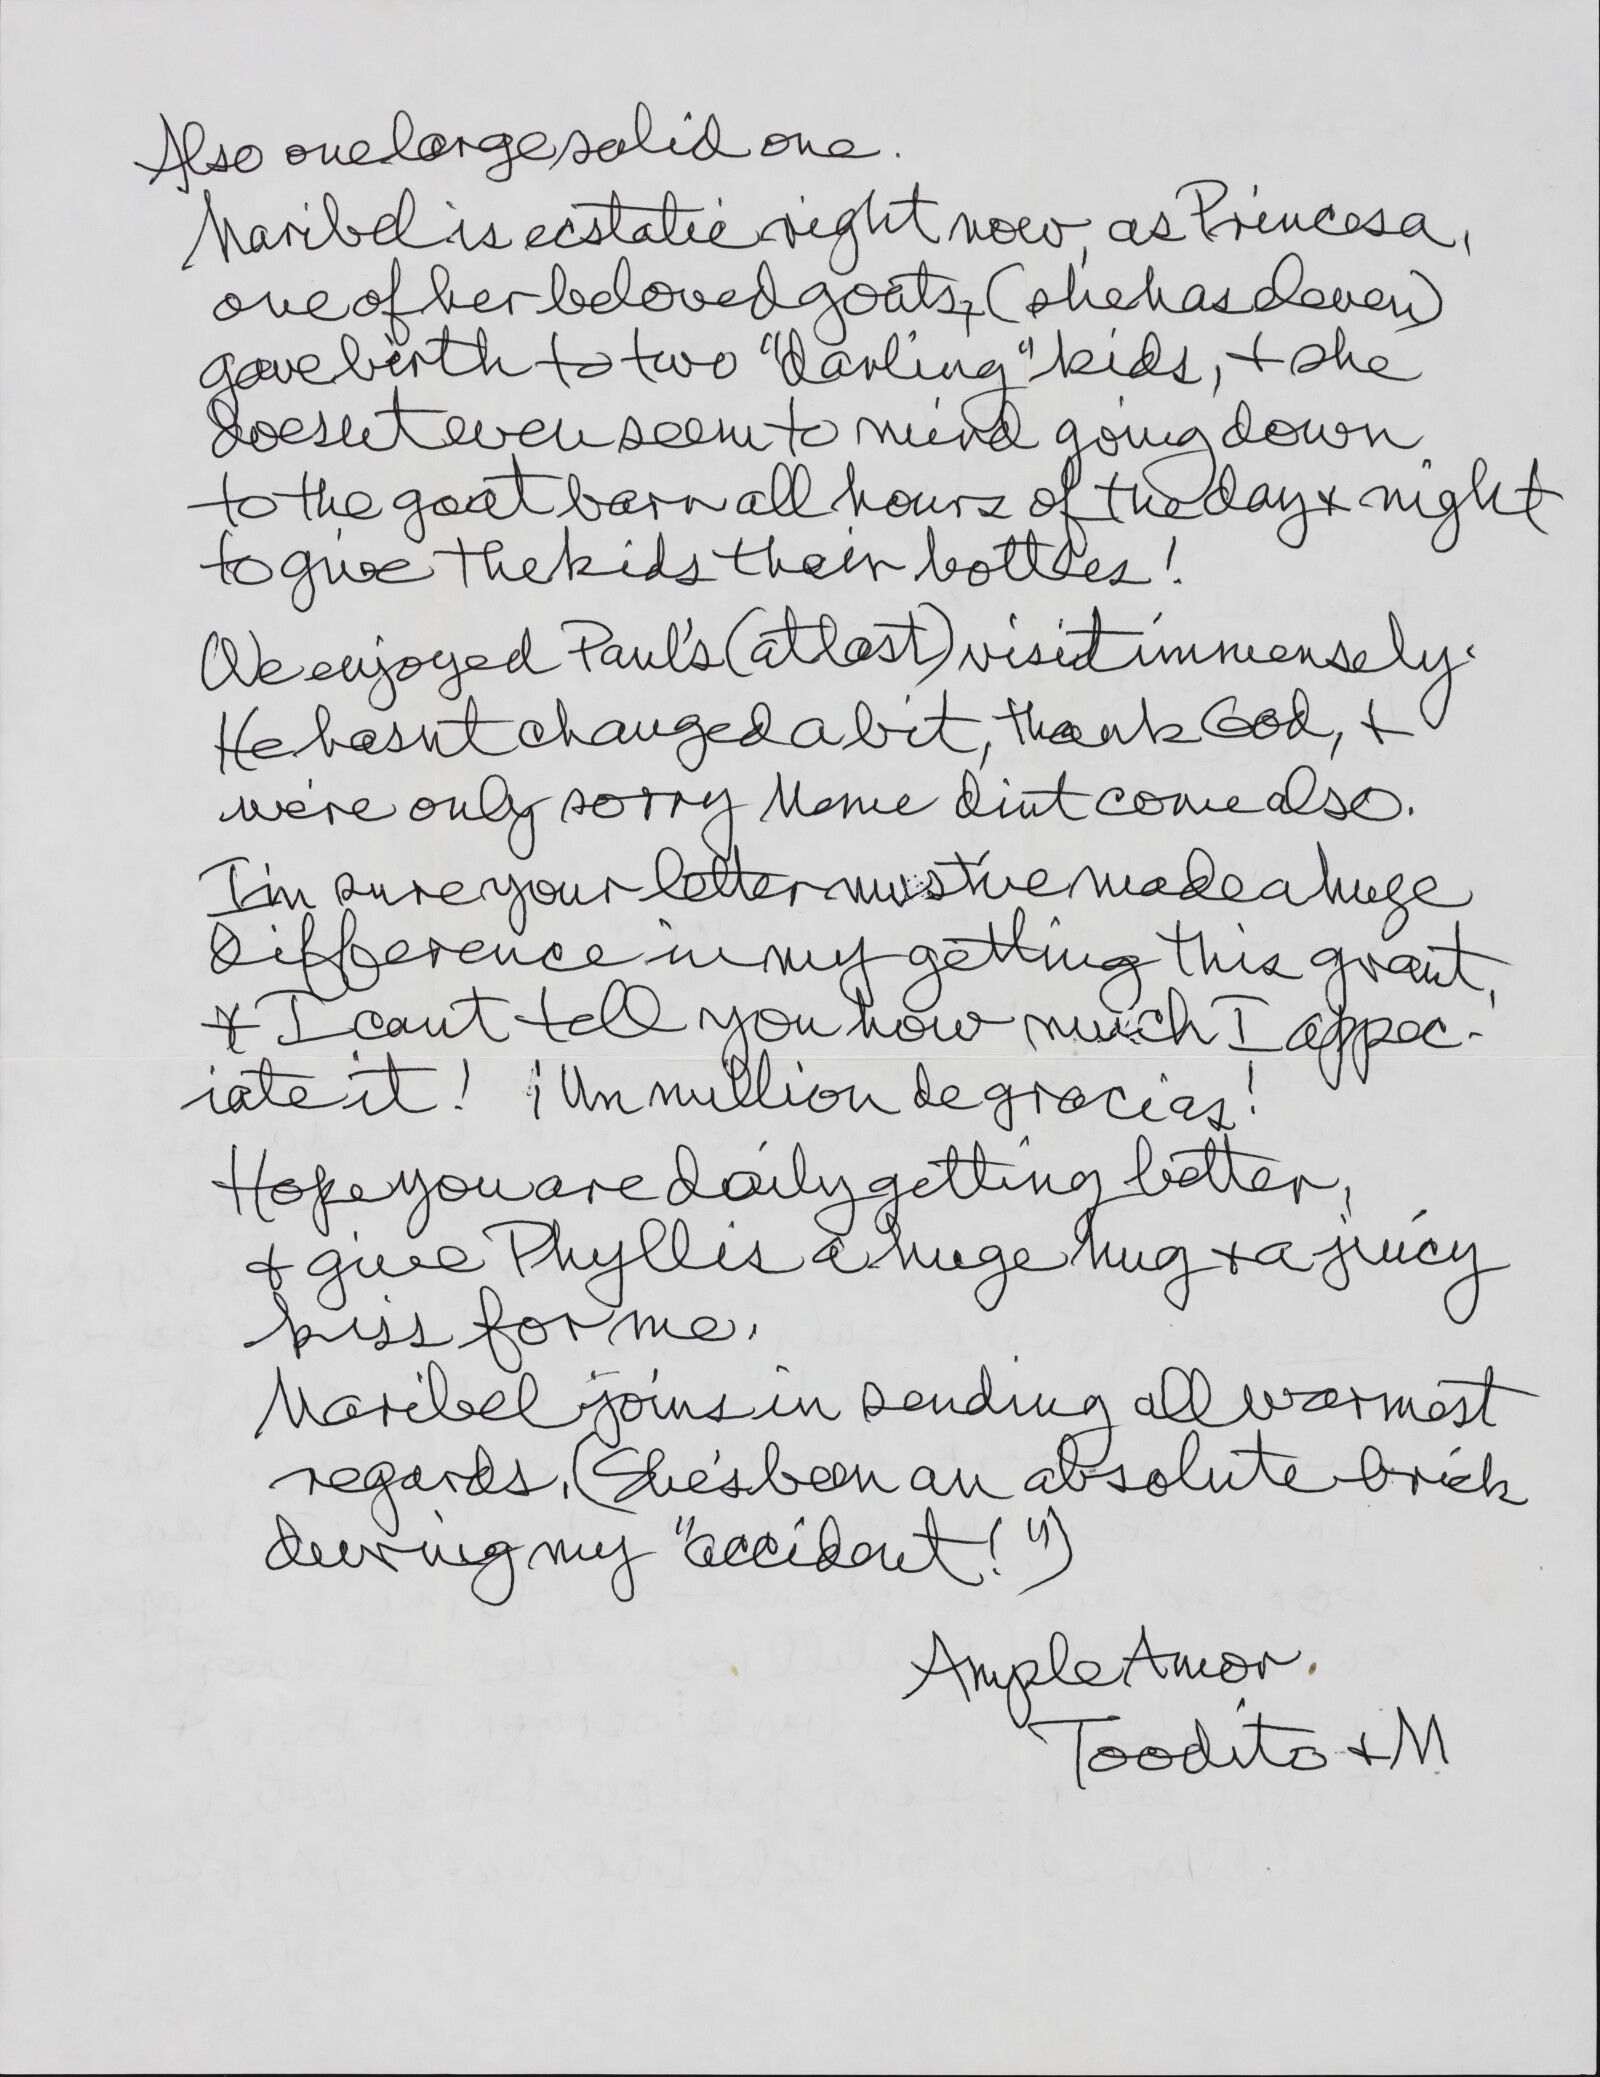 Also one large solid one.
Maribel is ecstatic right now, as Princesa,
one of her beloved goats, (she has eleven)
gave birth to two "darling" kids, + she
doesn't even seem to mind going down
to the goat barn all hours of the day + night
to give the kids their bottles!
We enjoyed Paul's (at last) visit immensely.
He hasn't changed a bit, thank God, +
we're only sorry Meme din't come also.
I'm sure your letter must've made a huge
difference in my getting this grant,
+ I can't tell you how much I apprec-
iate it! ¡Un million de gracias!
Hope you are daily getting better,
+ give Phyllis a huge hug + a juicy
kiss for me.
Maribel joins in sending all warmest
regards. (She's been an absolute brick
during my "accident!")
Ample Amor.
Toodito + M